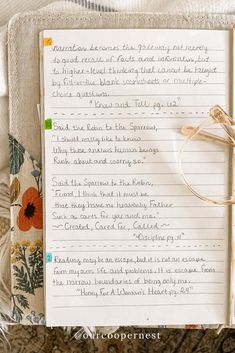 Narration becomes the gateway not merely
to good recall of facts and information, but
to higher-level thinking that cannot be taught
by fill-in-the blank worksheets or multiple-
choice questions.
"Know and Tell pg. 112"
Said the Robin to the Sparrow,
"I should really like to know
Why these anxious human beings
Rush about and worry so."
Said the Sparrow to the Robin,
"Friend, I think that it must be
That they have no heavenly Father
Such as cares for you and me."
~ Created, Cared For, Called ~
"Discipline pg. 11"
Reading may be an escape, but it is not an escape
from my own life and problems. It is escape from
the narrow boundaries of being only me.
"Honey For A Woman's Heart pg. 24"
@ourcoopernest